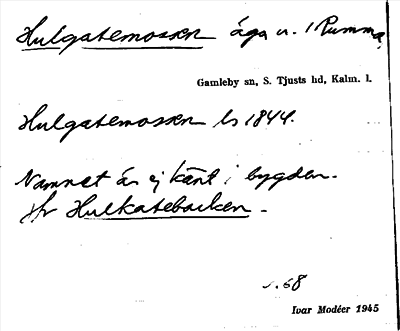 Hulgatemossen äga u. 1 Rumma,
Gamleby sn, S. Tjusts hd, Kalm. l.
Hulgatemossen ls 1844.
Namnet är ej känt i bygden.
Jfr Hulkatebacken.
s. 68
Ivar Modéer 1945